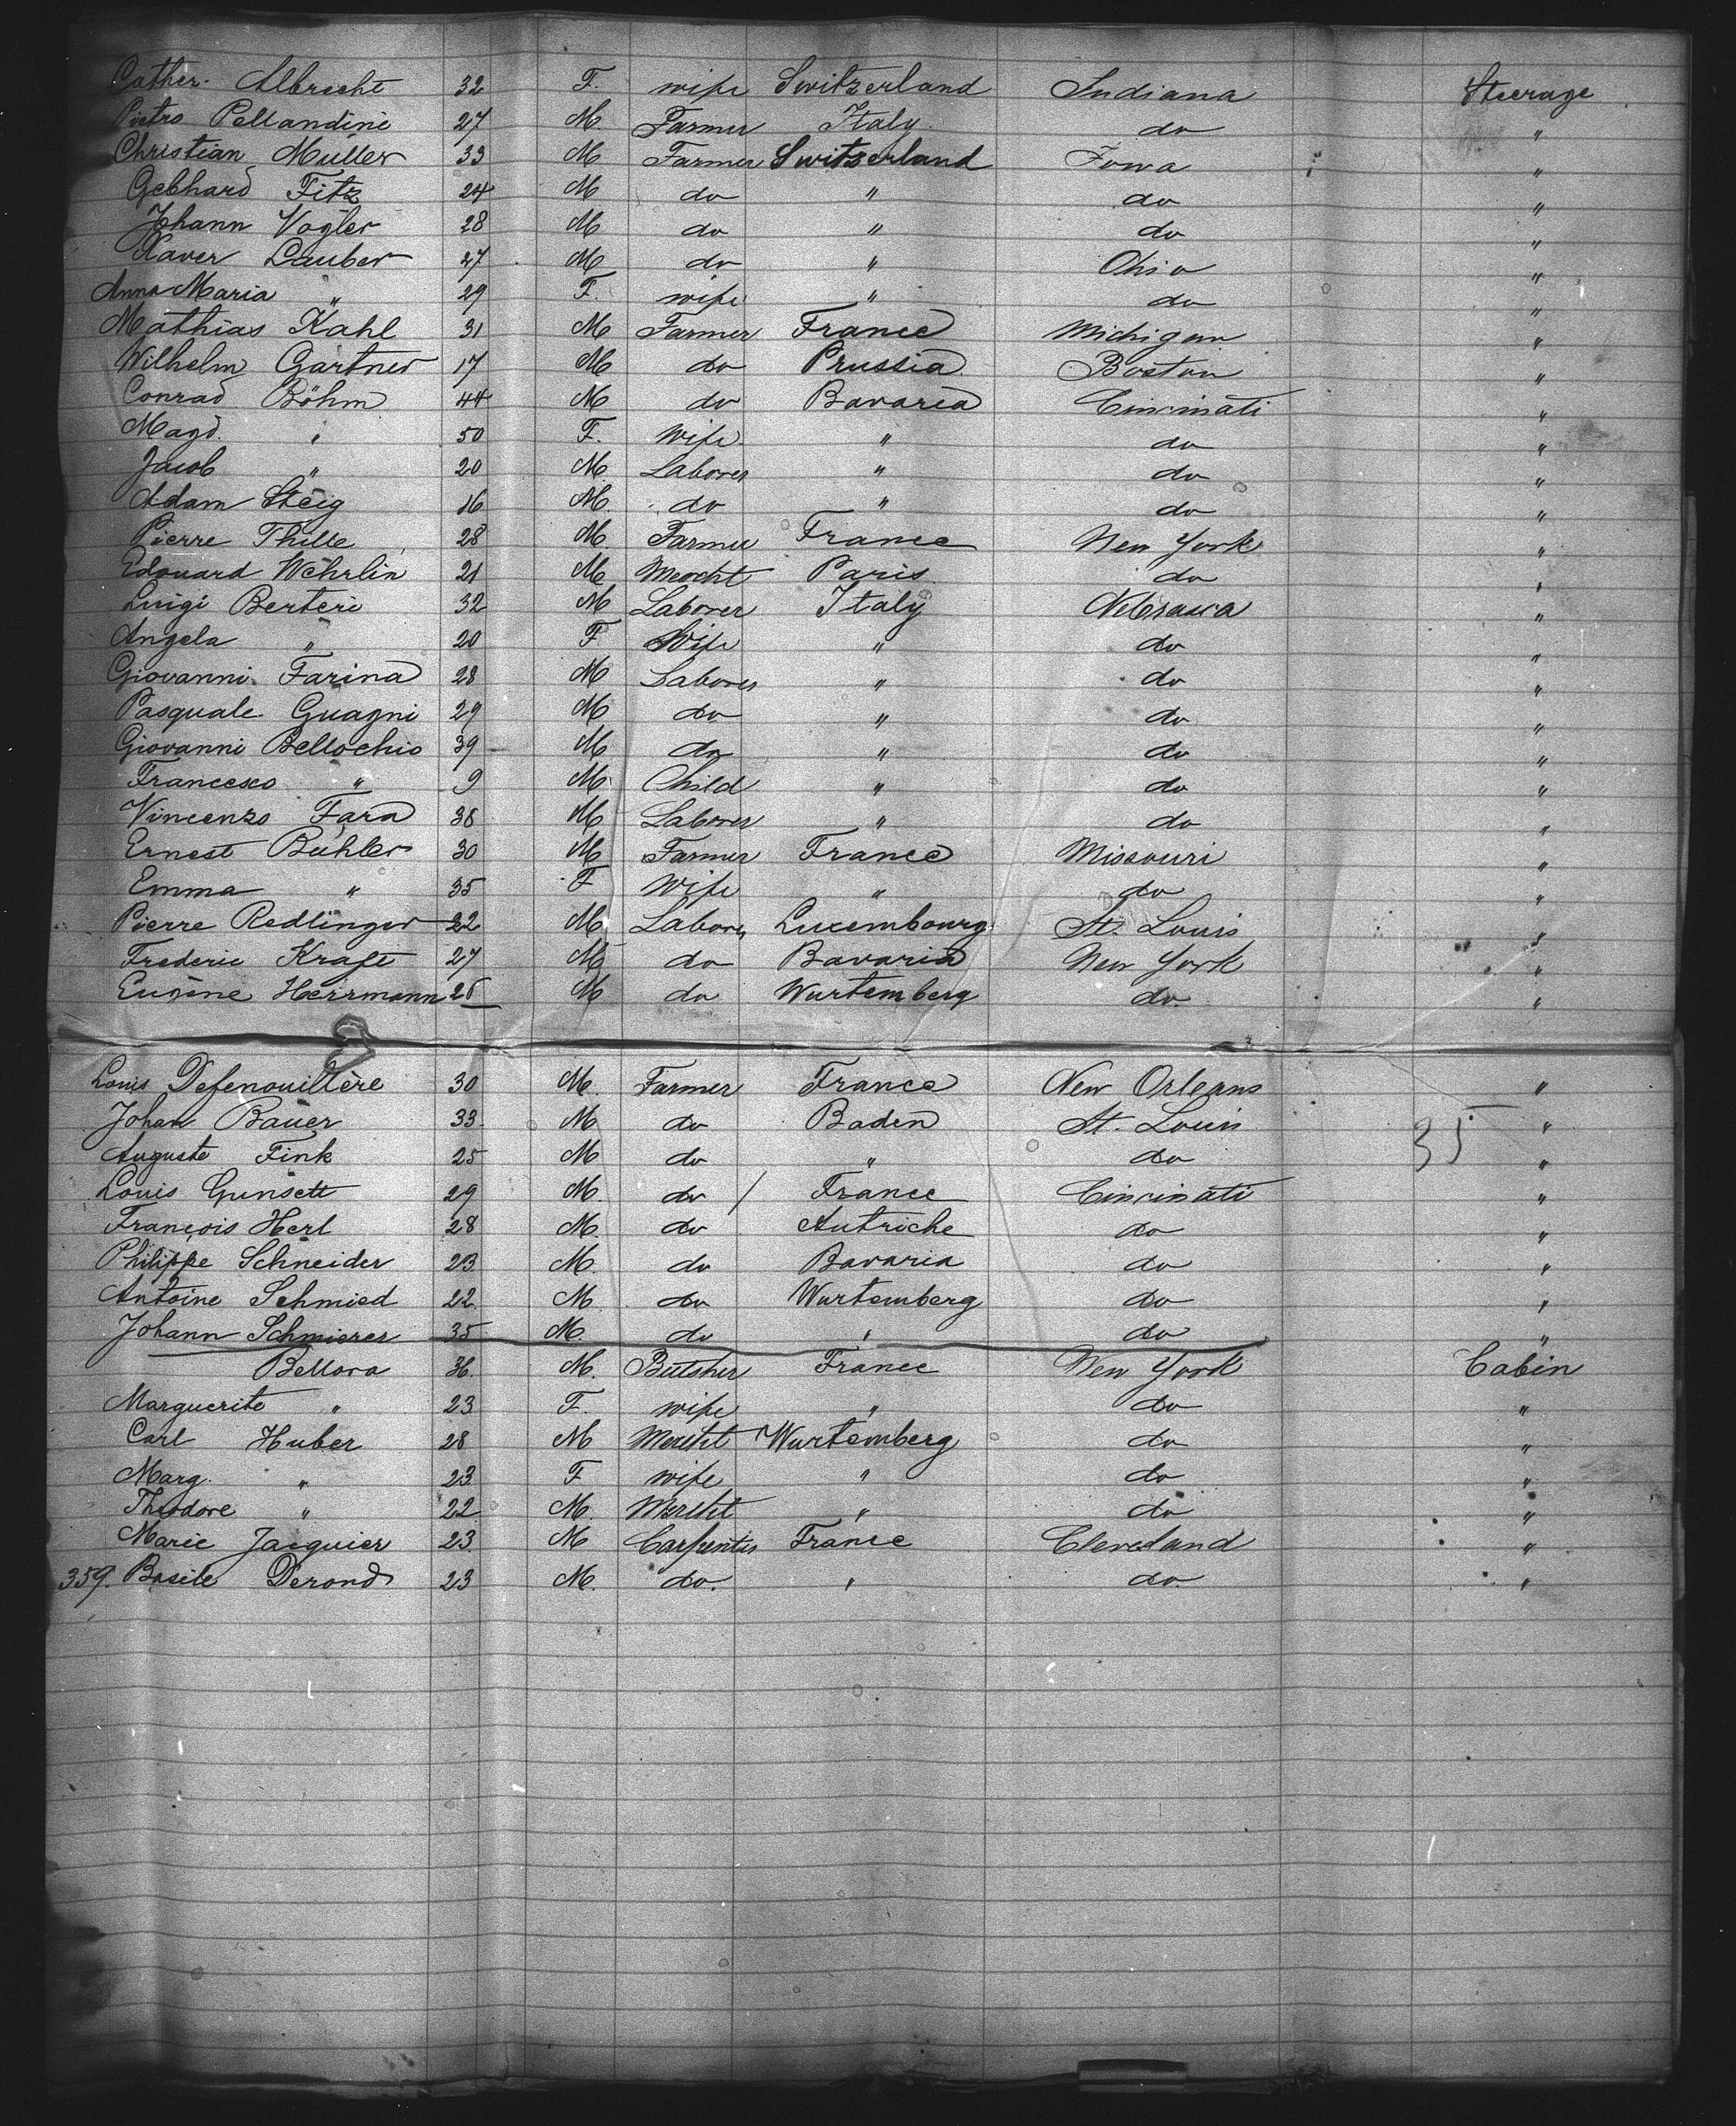 Cather. Albrecht 32 F. wife Switzerland Indiana Steerage
Pietro Pellandini 27 M. Farmer Italy do "
Christian Müller 33 M Farmer Switzerland Iowa "
Gebhard Fitz 24 M do " do "
Johann Vogler 28 M do " do "
Xaver Lauber 27 M do " Ohio "
Anna Maria " 29 F. wife " do "
Mathias Kahl 31 M Farmer France Michigan "
Wilhelm Gärtner 17 M do Prussia Boston "
Conrad Böhm 44 M do Bavaria Cincinati "
Magd. " 50 F. wife " do "
Jacob " 20 M Laborer " do "
Adam Steig 16 M. do " do "
Pierre Thille 28 M. Farmer France New York "
Edouard Wehrlin 21 M Mercht Paris do "
Luigi Berteri 32 M Laborer Italy Nebrasca "
Angela " 20 F Wife " do "
Giovanni Farina 28 M Laborer " do "
Pasquale Guagni 29 M do " do "
Giovanni Bellochio 39 M do " do "
Francesco " 9 M Child " do "
Vincenzo Fara 38 M Laborer " do "
Ernest Bühler 30 M Farmer France Missouri "
Emma " 35 F Wife " do "
Pierre Redlinger 22 M Laborer Luxembourg St. Louis "
Frederic Kraft 27 M do Bavaria New York "
Eugène Herrmann M do Wurtemberg do "
Louis Defenouillère 30 M. Farmer France New Orleans "
Johan Bauer 33 M do Baden St. Louis 35 "
Auguste Fink 25 M do " do "
Louis Gunsett 29 M. do / France Cincinati "
François Herl 28 M. do Autriche do "
Philippe Schneider 23 M. do Bavaria do "
Antoine Schmied 22 M. do Wurtemberg do "
Johann Schmierer 35 M. do " do "
Bellora 36. M. Butsher France New York Cabin
Marguerite " 23 F. wife " do "
Carl Huber 28 M Mercht Wurtemberg do "
Marg. " 23 F wife " do "
Theodore " 22 M. Mercht " do "
Marie Jacquier 23 M Carpenter France Cleveland "
359. Basile Derond 23 M. do. " do "